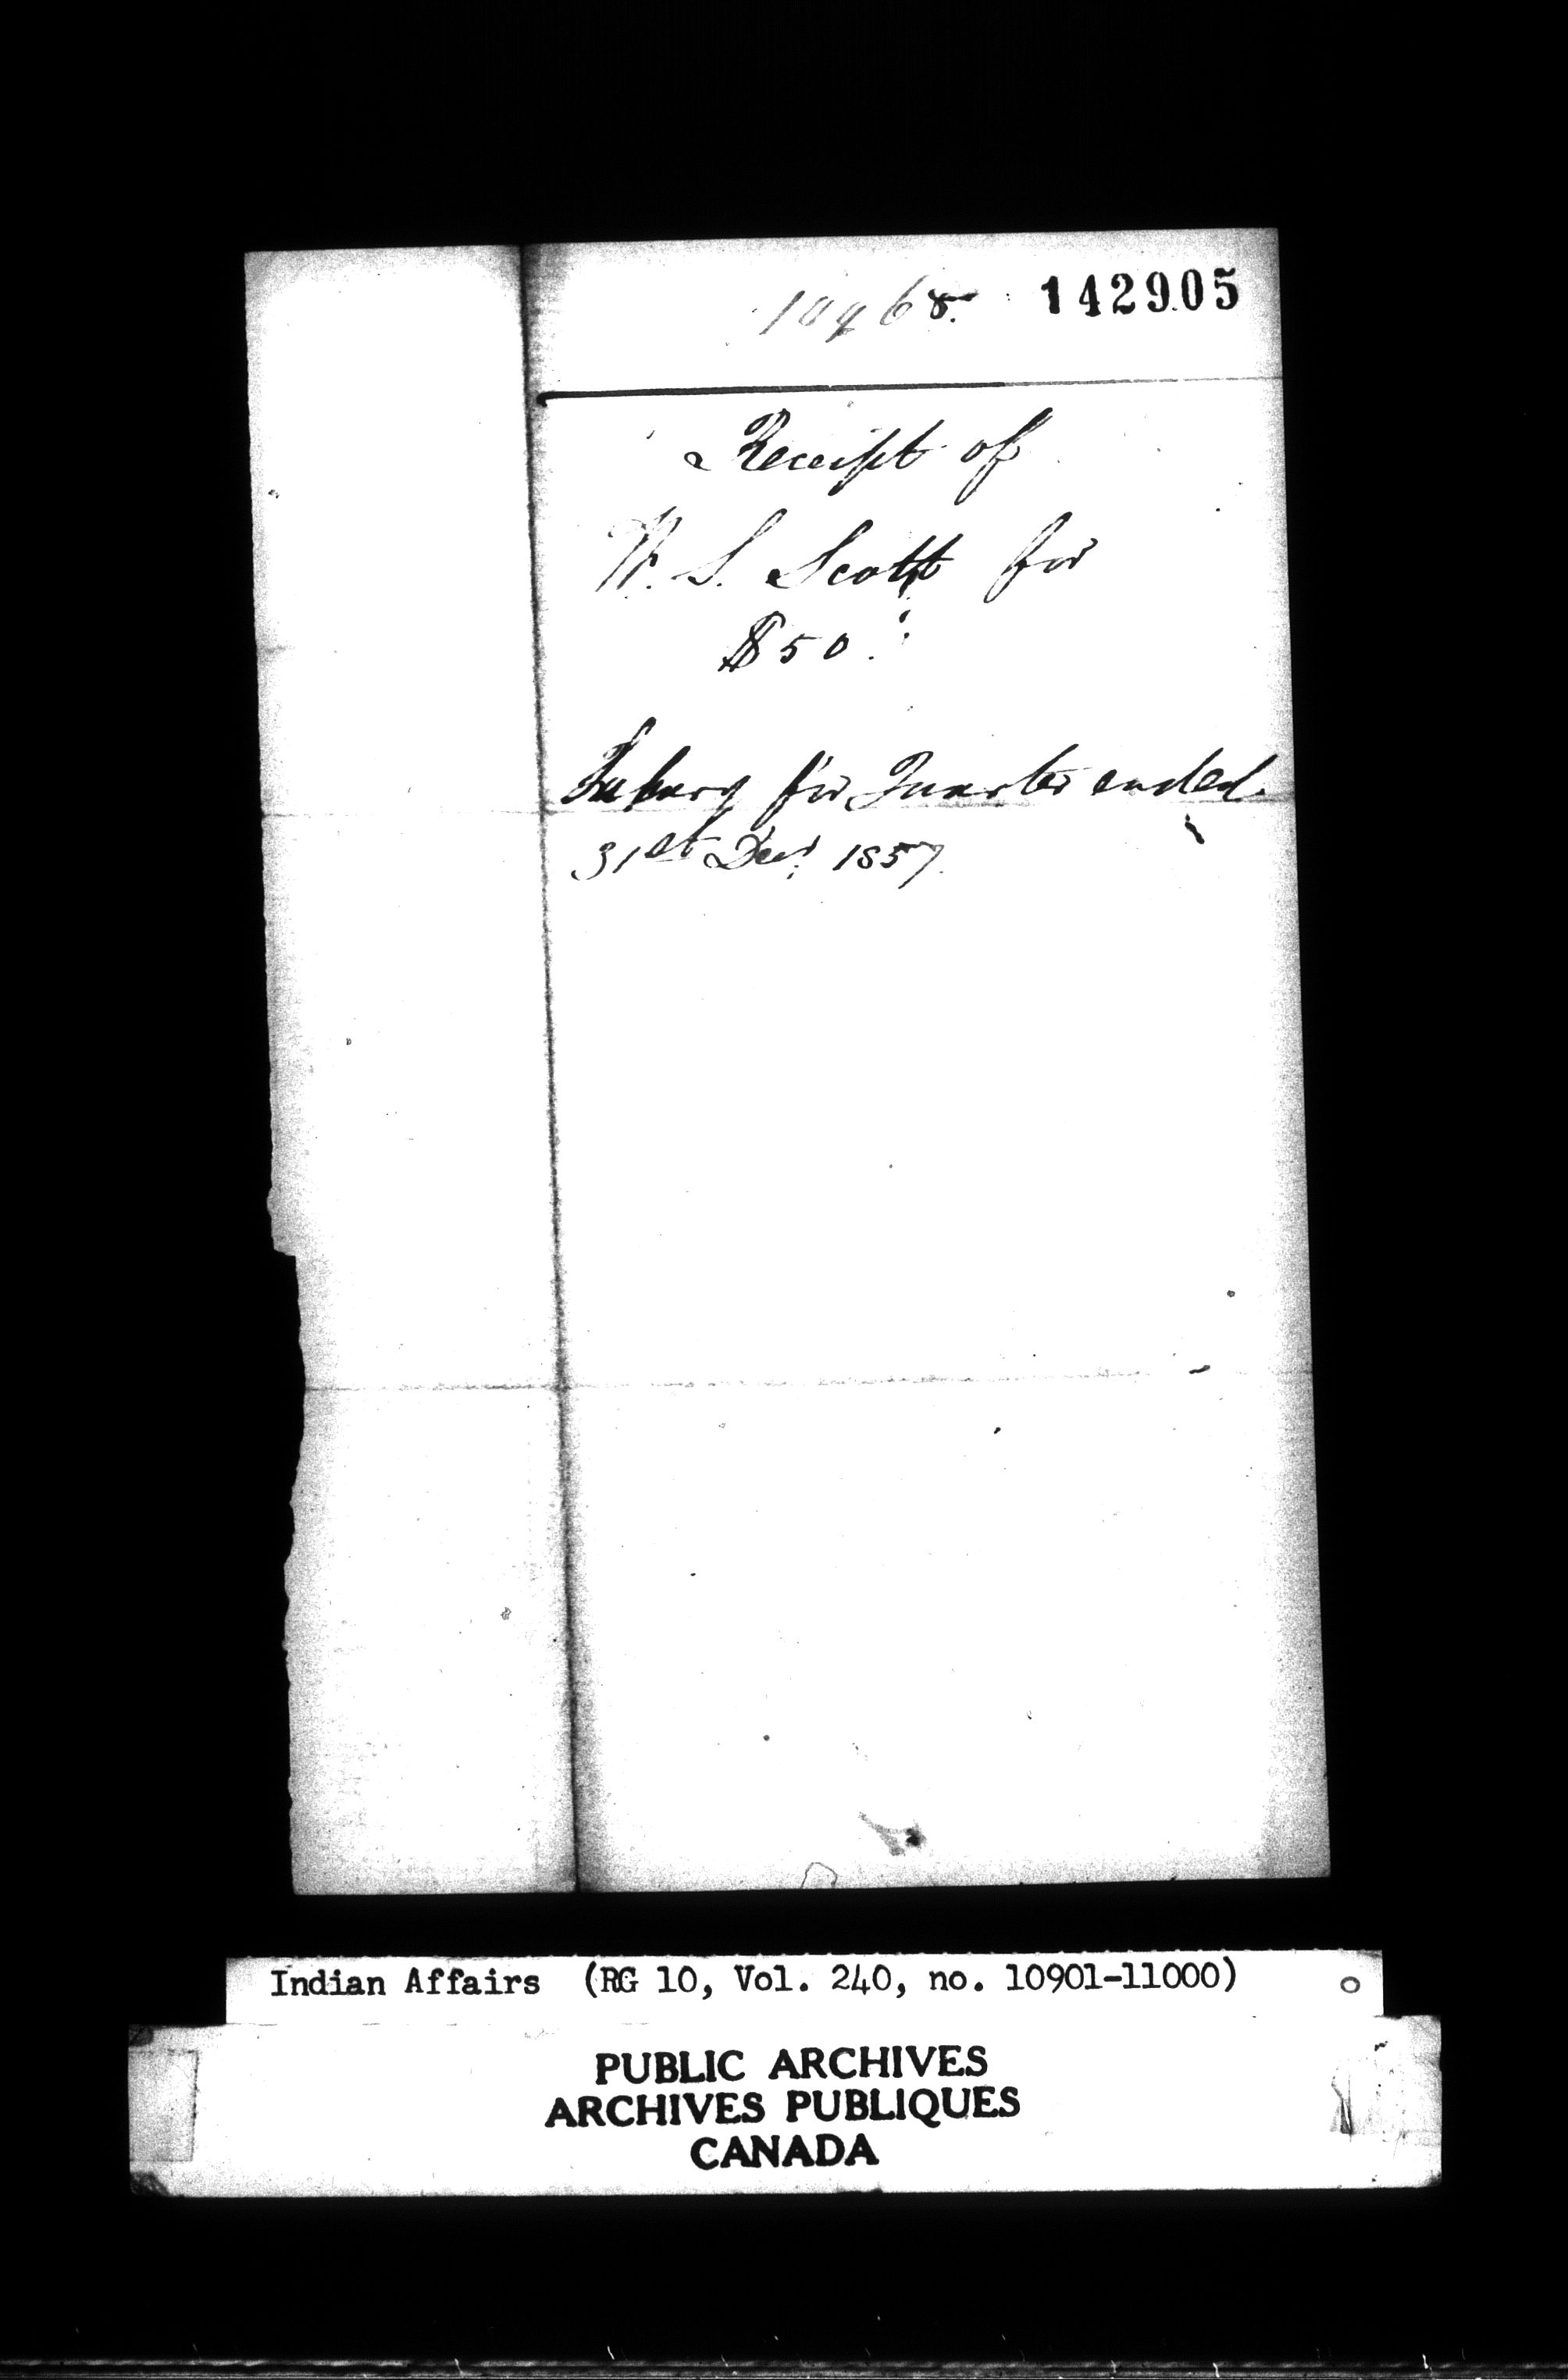 10968. 142905
Receipt of
W. S. Scott for
$50.
for Quarter ended
31st Decr 1857.
Indian Affairs (RG 10, Vol. 240, no. 10901-11000)
PUBLIC ARCHIVES
ARCHIVES PUBLIQUES
CANADA